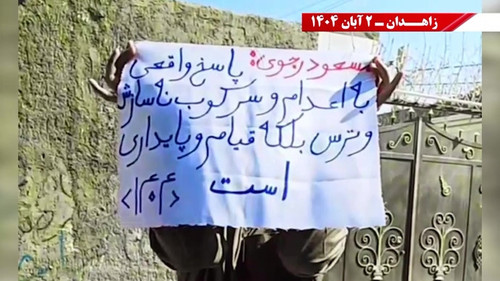 زاهدان ــ ۲ آبان ۱۴۰۴
مسعود رجوی: پاسخ واقعی
به اعدام و سرکوب نه سازش
و ترس بلکه قیام و پایداری
است